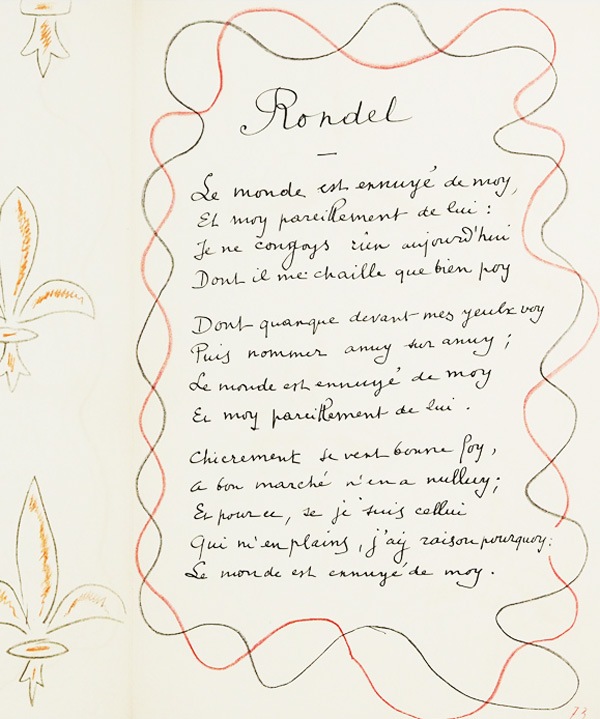 Rondel
Le monde est ennuyé de moy,
Et moy pareillement de lui :
Je ne congoys rien aujourd'hui
Dont il me chaille que bien poy
Dont quanque devant mes yeulx voy
Puis nommer anuy sur anuy ;
Le monde est ennuyé de moy
Et moy pareillement de lui .
Chierement se vent bonne foy,
a bon marché n'en a nulluy;
Et pour ce, se je suis cellui
Qui m'en plains, j'ay raison pourquoy:
Le monde est ennuyé de moy .
73